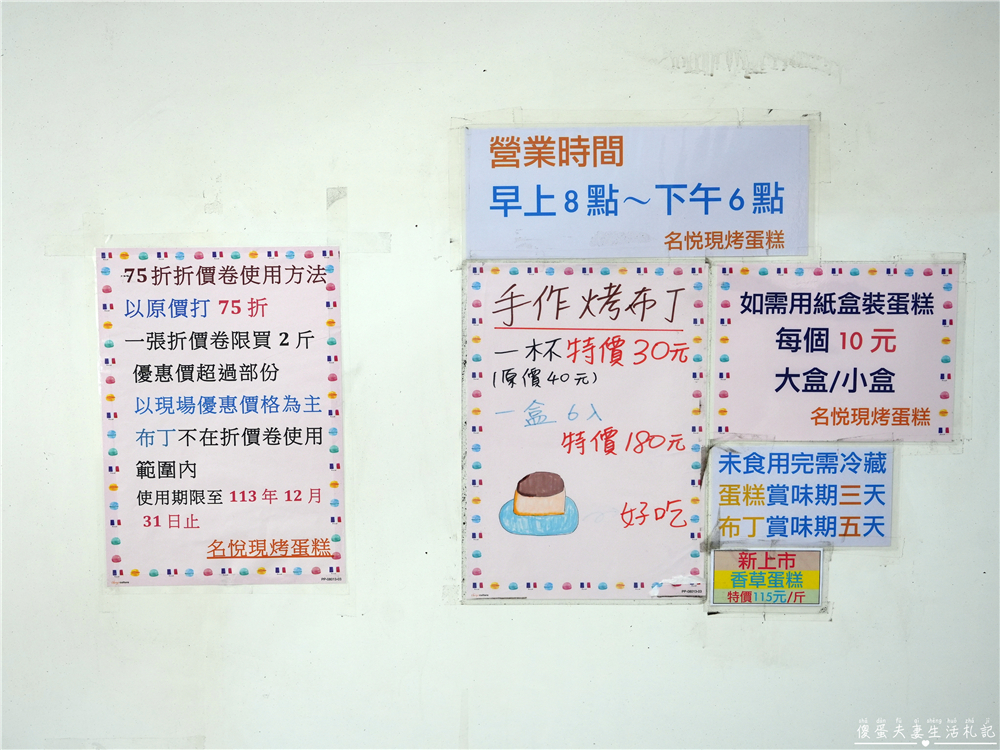 75折折價卷使用方法
以原價打 75 折
一張折價卷限買 2 斤
優惠價超過部份
以現場優惠價格為主
布丁不在折價卷使用
範圍內
使用期限至 113 年 12 月
31 日止
名悅現烤蛋糕
PP-08013-03
營業時間
早上 8 點～下午 6 點
名悅現烤蛋糕
手作烤布丁
一杯特價30元
(原價40元)
一盒 6入
特價180元
好吃
PP-08013-03
如需用紙盒裝蛋糕
每個 10 元
大盒/小盒
名悅現烤蛋糕
未食用完需冷藏
蛋糕賞味期三天
布丁賞味期五天
新上市
香草蛋糕
特價115元/斤
傻蛋夫妻生活札記